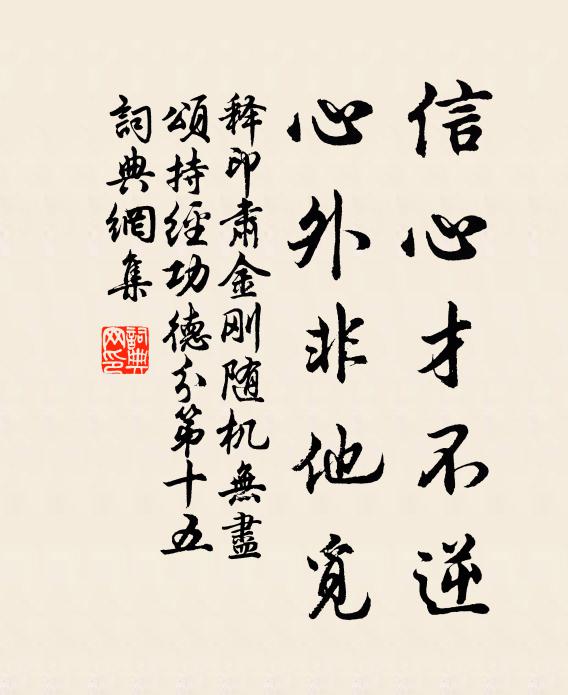 信心才不逆
心外非他覓
释印肃金刚随机無盡
頌持經功德分第十五
詞典網集
詞典
网印